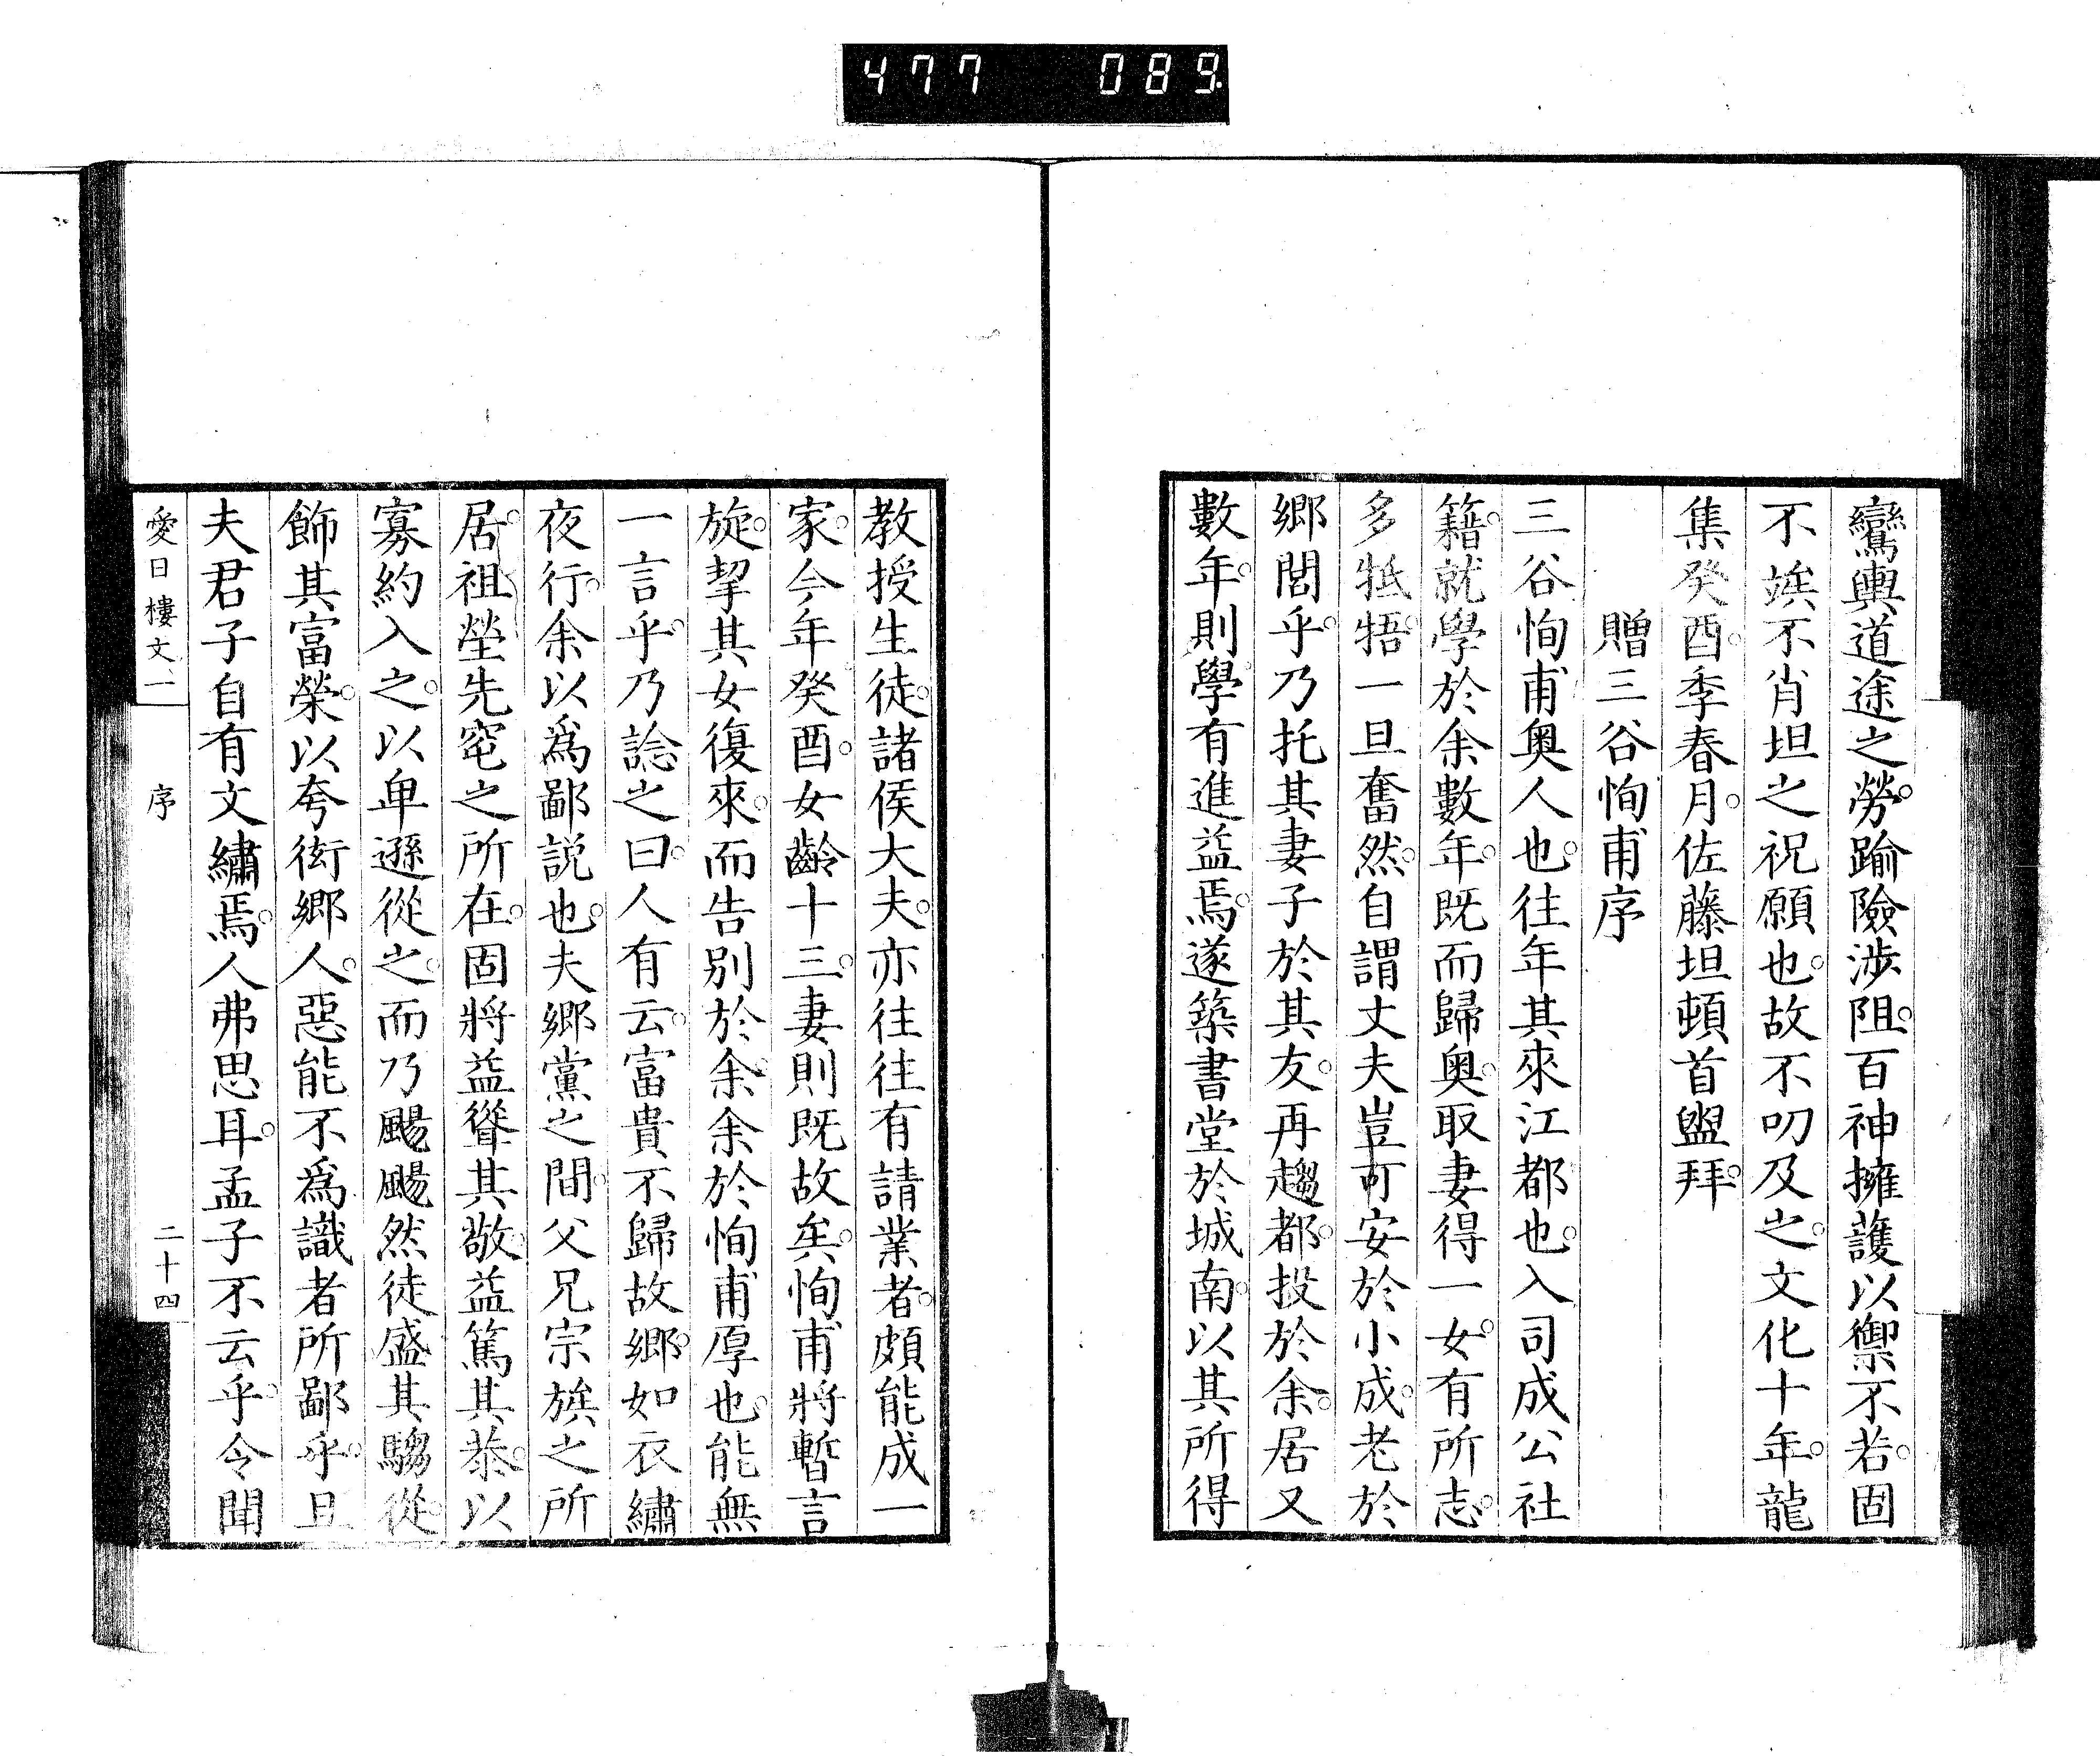 477 089
鸞輿道途之勞。踰險涉阻。百神擁護以禦不若。固
不竢不肖坦之祝願也。故不叨及之。文化十年。龍
集癸酉。季春月。佐藤坦頓首盥拜。
贈三谷恂甫序
三谷恂甫奧人也。往年其來江都也。入司成公社
籍。就學於余數年。既而歸奧。取妻得一女。有所志。
多牴牾。一旦奮然。自謂丈夫豈可安於小成。老於
鄉閭乎。乃托其妻子於其友。再趨都。投於余。居又
數年。則學有進益焉。遂築書堂於城南。以其所得
教授生徒。諸侯大夫。亦往往有請業者。頗能成一
家。今年癸酉。女齡十三。妻則既故矣。恂甫將暫言
旋。挈其女復來。而告別於余。余於恂甫厚也。能無
一言乎。乃諗之曰。人有云。富貴不歸故鄉。如衣繡
夜行。余以爲鄙説也。夫鄉黨之間。父兄宗族之所
居。祖塋先窀之所在。固將益聳其敬。益篤其恭。以
寡約入之。以卑遜從之。而乃颺颺然徒盛其騶從。
飾其富榮。以夸衒鄉人。惡能不爲識者所鄙乎。且
夫君子自有文繡焉。人弗思耳。孟子不云乎。令聞
愛日樓文、一 序 二十四